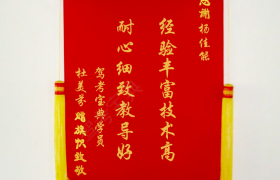 感谢杨佳能
经验丰富技术高
耐心细致教导好
驾考宝典学员
杜美芬赠旗致敬